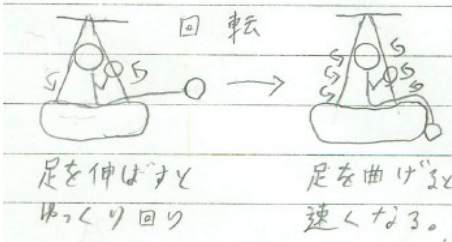 回転
足を伸ばすと
ゆっくり回り
足を曲げると
速くなる。